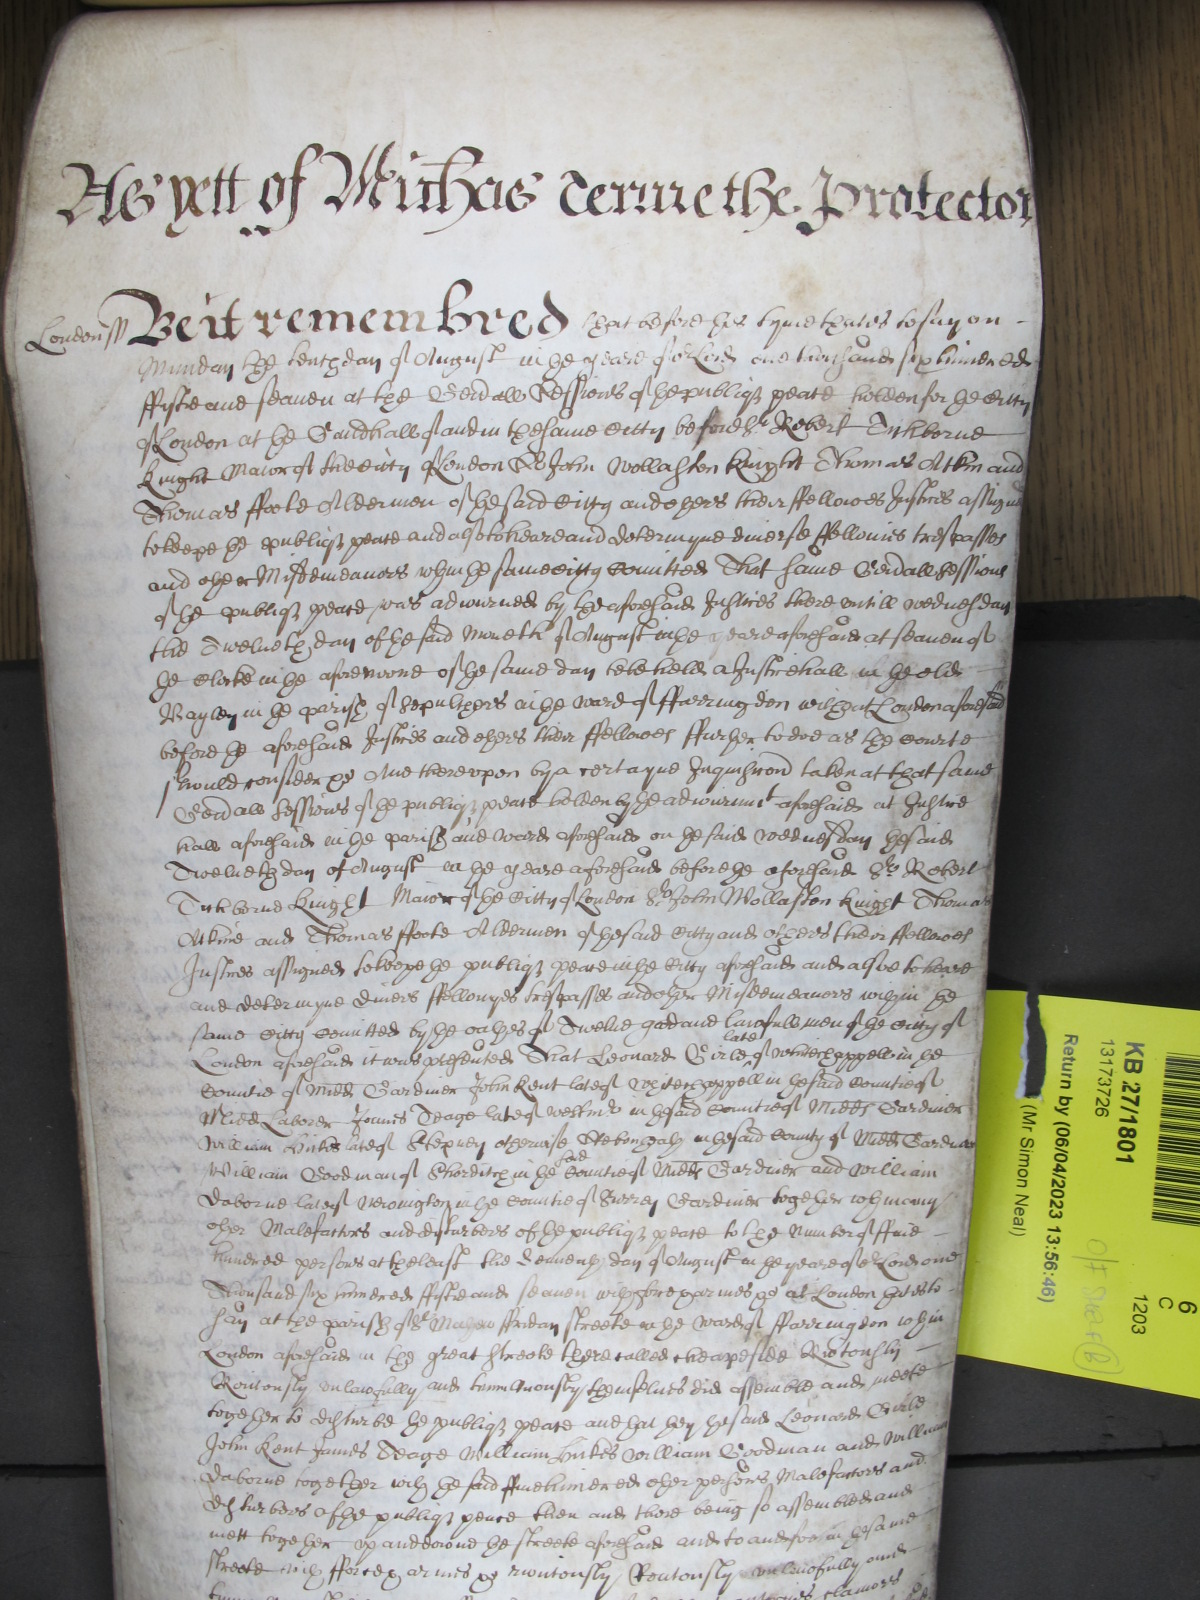 As yett of Michas terme the Protector
London ss Be it remembred that before this tyme that is to say on
Munday the tenth day of August in the yeare of or Lord one thousand six hundred
ffiftie and seaven at the Gen'all Sessions of the publiq peace holden for the Citty
of London at the Guildhall of and in the same Citty before Sr Robert Tichborne
Knight Maior of the Citty of London Sr John Wollaston Knight Thomas Atkin and
Thomas ffoote Aldermen of the said Citty and others their ffellowes Justices assigned
to keepe the publiq peace and also to heare and determyne diverse ffellonies trespasses
and other Misdemeanors wthin the same Citty comitted That same Gen'all Sessions
of the publiq peace was adiourned by the aforesaid Justices there untill wednesday
the Twelueth day of the said Moneth of August in the yeare aforesaid at seaven of
the Clocke in the afternoone of the same day to be held at Justicehall in the old
Bayley in the parish of Sepulchers in the ward of ffarringdon without London aforesaid
before the aforesaid Justices and others their ffellowes ffurther to doe as the Courte
should consider &c And thereupon by a certayne Inquisicon taken at that same
Gen'all Sessions of the publiq peace holden by the adiournmt aforesaid at Justice
hall aforesaid in the parish and ward aforesaid on the said wednesday the said
Twelueth day of August in the yeare aforesaid before the aforesaid Sr Robert
Tichborne Knight Maior of the Citty of London Sr John Wollaston Knight Thomas
Atkins and Thomas ffoote Aldermen of the said Citty and others their ffellowes
Justices assigned to keepe the publiq peace in the Citty aforesaid and also to heare
and determyne divers ffellonyes trespasses and other Misdemeanors within the
same Citty comitted by the oathes of Twelve good and lawfull men of the Citty of
London aforesaid it was presented That Leonard Girle late of whitechappell in the
Countie of Midd Gardiner John Kent late of whitechappell in the said Countie of
Midd Laborer James Teage late of westmr in the said Countie of Midd Gardiner
William Hickes late of Stepney otherwise Stebonheath in the said County of Midd Gardiner
William Goodman of Shorditch in the said Countie of Midd Gardiner and William
Daborne late of Newington in the Countie of Surrey Gardiner together wth many
other Malefactors and disturbers of the publiq peace to the Number of five
hundred persons at the least the day of August in the yeare of or Lord one
Thousand six hundred ffiftie and seaven with force & armes &c at London that is to
say at the parish of St Mathew ffriday streete in the ward of ffarringdon wthin
London aforesaid in the great streete there called cheapeside Riotously
Routously unlawfully and tumultuously themselves did assemble and meete
together to disturbe the publiq peace and that they the said Leonard Girle
John Kent James Teage William Hickes William Goodman and William
Daborne together with the said ffive hundred other persons Malefactors and
disturbers of the publiq peace then and there being so assembled and
mett together up and downe the streete aforesaid and to and fro in the same
streete with fforce & armes &c riotously Routously unlawfully and
clamors
KB 27/1801
13173726
Return by (06/04/2023 13:56:46)
(Mr Simon Neal)
6
C
1203